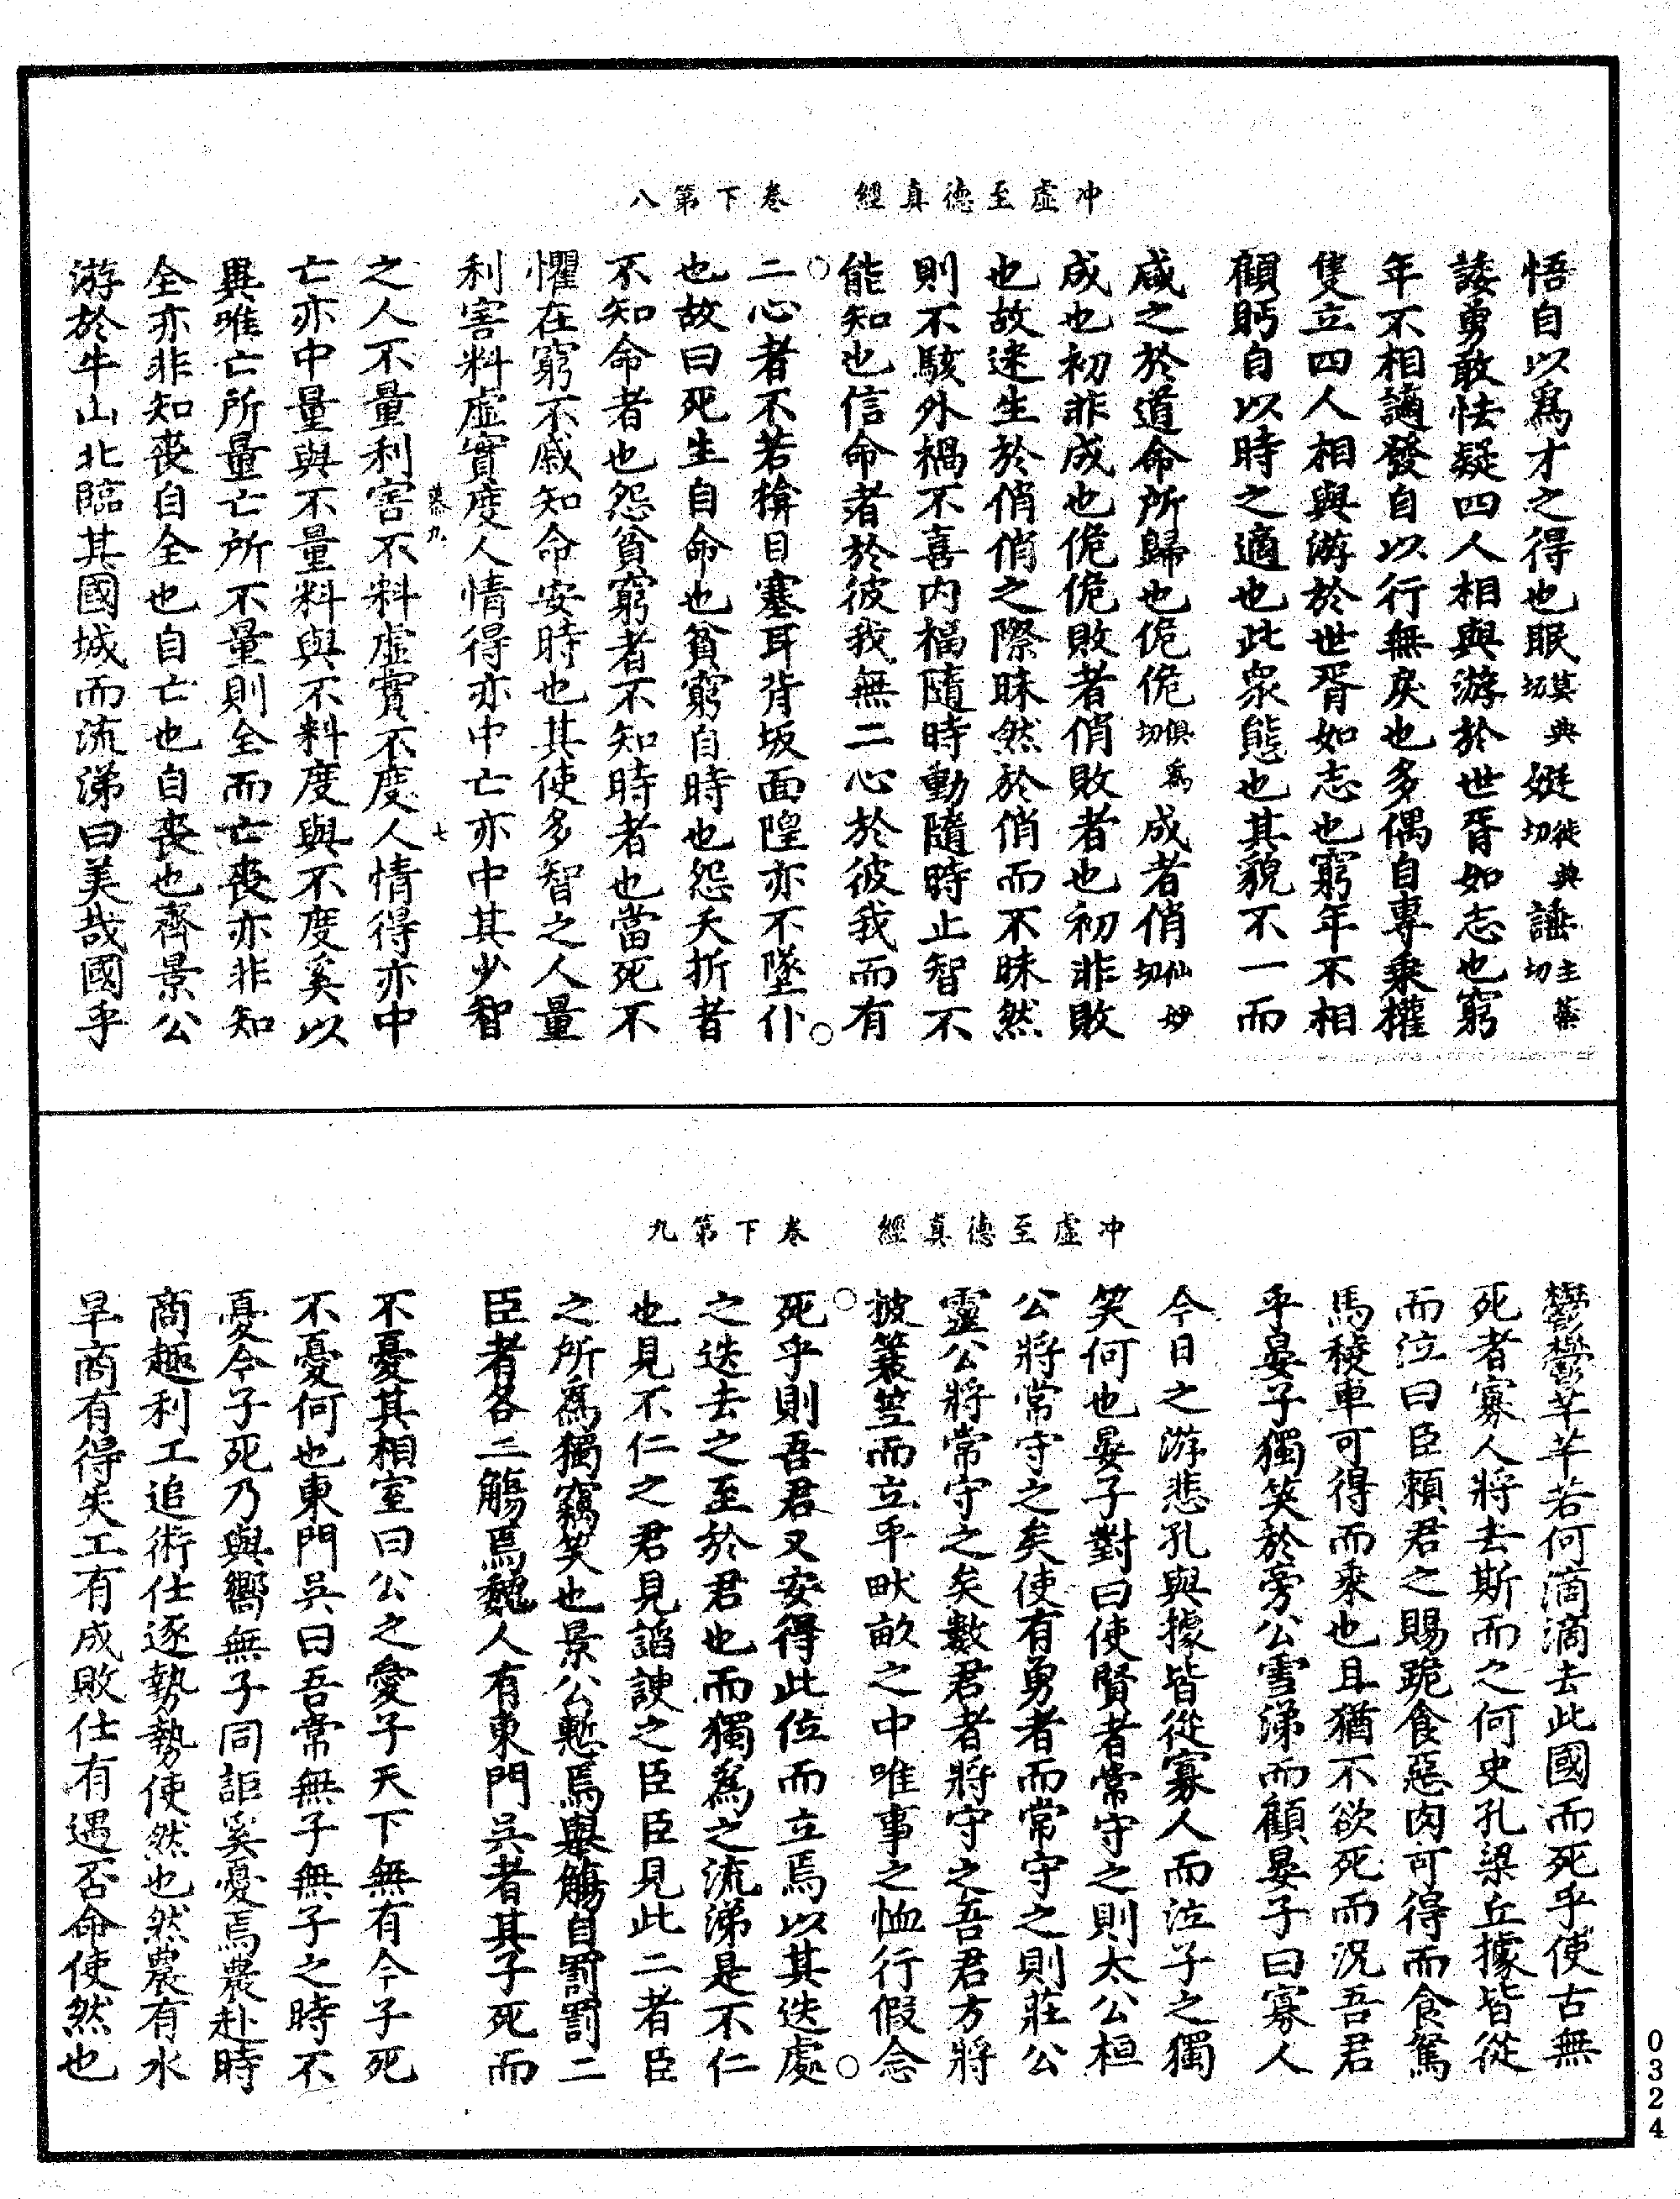 冲虛至德真經　卷下第八
悟自以為才之得也眠莫典切娗徒典切諈主蘂切
諉勇敢怯疑四人相與游於世胥如志也窮
年不相讁發自以行無戾也多偶自專乘權
隻立四人相與游於世胥如志也窮年不相
顧眄自以時之適也此衆態也其貌不一而
咸之於道命所歸也佹佹俱為切成者俏仙妙切
成也初非成也佹佹敗者俏敗者也初非敗
也故迷生於俏俏之際昧然於俏而不昧然
則不駭外禍不喜内福隨時動隨時止智不
能知也信命者於彼我無二心於彼我而有
二心者不若揜目塞耳背坂面隍亦不墜仆
也故曰死生自命也貧窮自時也怨夭折者
不知命者也怨貧窮者不知時者也當死不
懼在窮不戚知命安時也其使多智之人量
利害料虛實度人情得亦中亡亦中其少智
之人不量利害不料虛實不度人情得亦中
亡亦中量與不量料與不料度與不度奚以
異唯亡所量亡所不量則全而亡喪亦非知
全亦非知喪自全也自亡也自喪也齊景公
游於牛山北臨其國城而流涕曰美哉國乎
冲虛至德真經　卷下第九
鬱鬱芊芊若何滴滴去此國而死乎使古無
死者寡人將去斯而之何史孔梁丘據皆從
而泣曰臣賴君之賜䟽食惡肉可得而食駑
馬稜車可得而乘也且猶不欲死而況吾君
乎晏子獨笑於旁公雪涕而顧晏子曰寡人
今日之游悲孔與據皆從寡人而泣子之獨
笑何也晏子對曰使賢者常守之則太公桓
公將常守之矣使有勇者而常守之則莊公
靈公將常守之矣數君者將守之吾君方將
披簑笠而立乎畎畝之中唯事之恤行假念
死乎則吾君又安得此位而立焉以其迭處
之迭去之至於君也而獨為之流涕是不仁
也見不仁之君見諂諛之臣臣見此二者臣
之所為獨竊笑也景公慙焉舉觴自罰罰二
臣者各二觴焉魏人有東門吳者其子死而
不憂其相室曰公之愛子天下無有今子死
不憂何也東門吳曰吾常無子無子之時不
憂今子死乃與嚮無子同詎奚憂焉農赴時
商趣利工追術仕逐勢勢使然也然農有水
旱商有得失工有成敗仕有遇否命使然也
0324